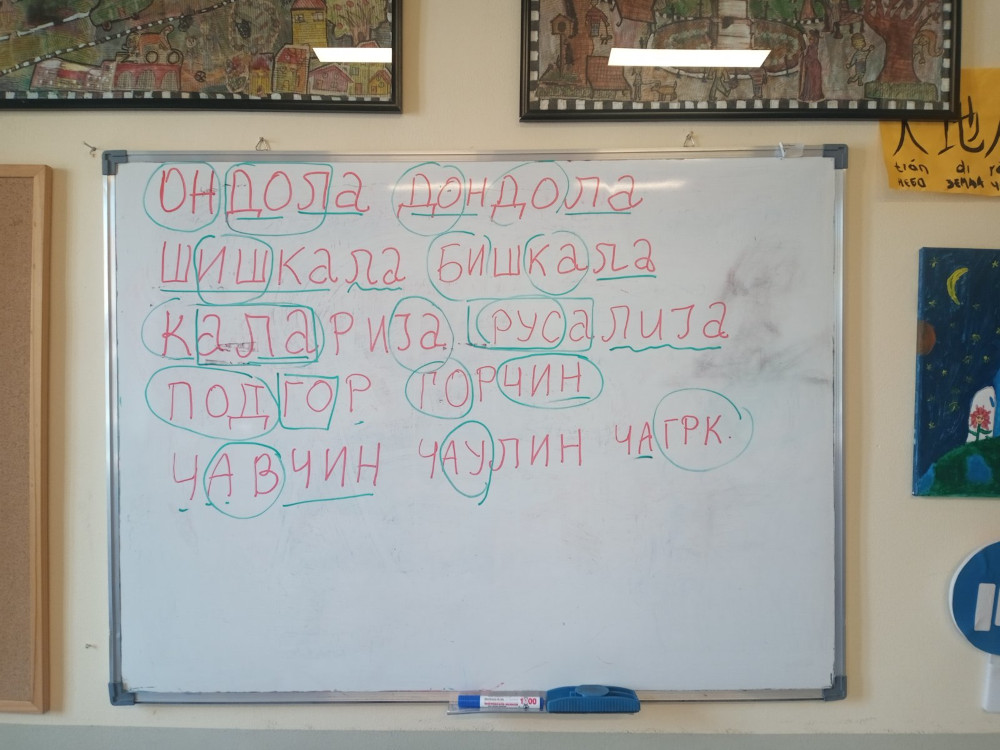 ОНДОЛА ДОНДОЛА
ШИШКАЛА БИШКАЛА
КАЛАРИЈА РУСАЛИЈА
ПОДГОР ГОРЧИН
ЧАВЧИН ЧАУЛИН ЧАГРК.
tián di
НЕБО ЗЕМЈА